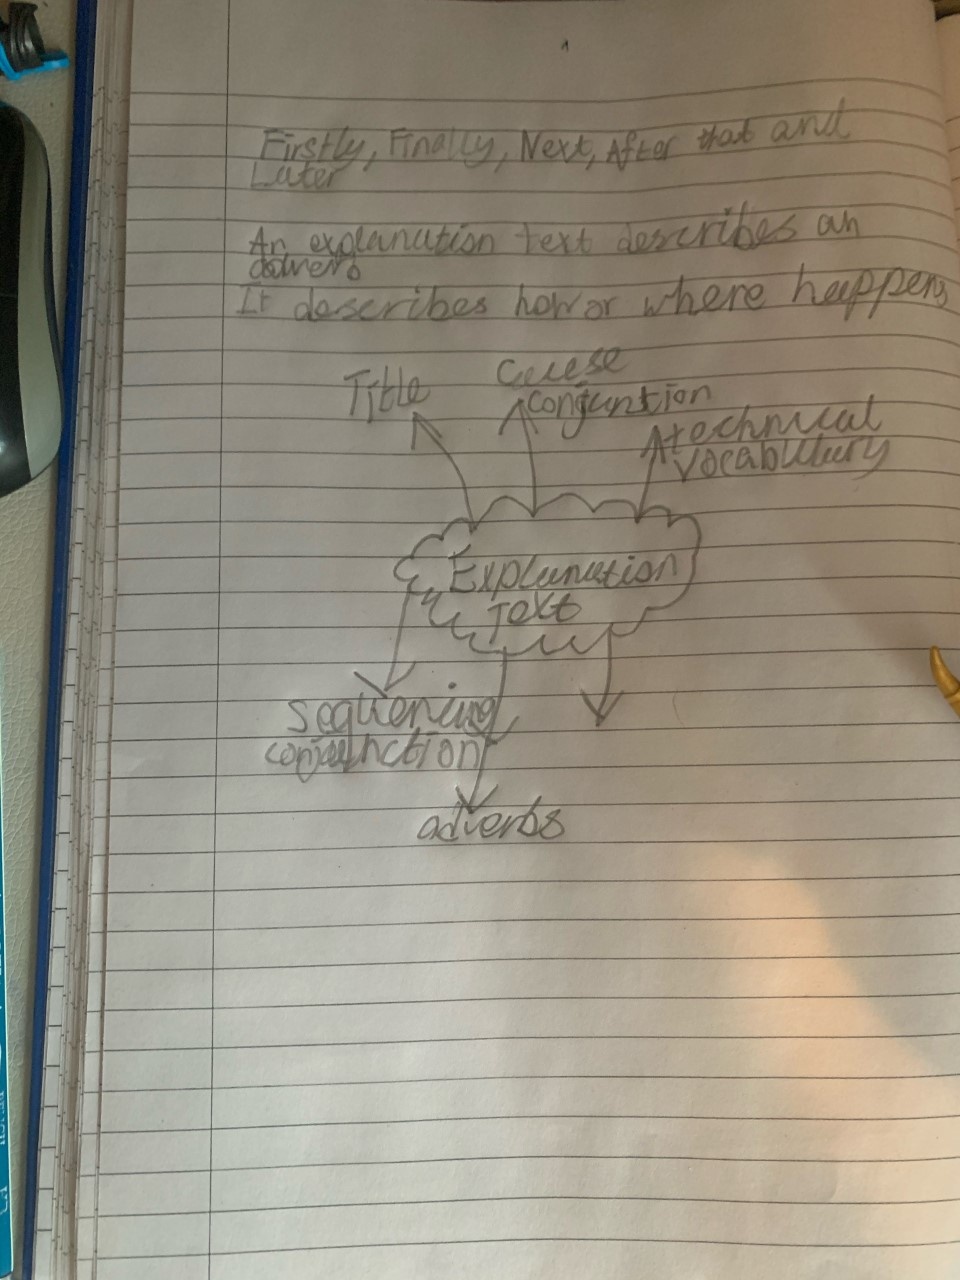 Firstly, Finally, Next, After that and
Later
An explanation text describes an
It describes how or where happens
Title
Cause
conjuntion
technical
vocabulary
Explanation
Text
sequening
conjunction
adverbs